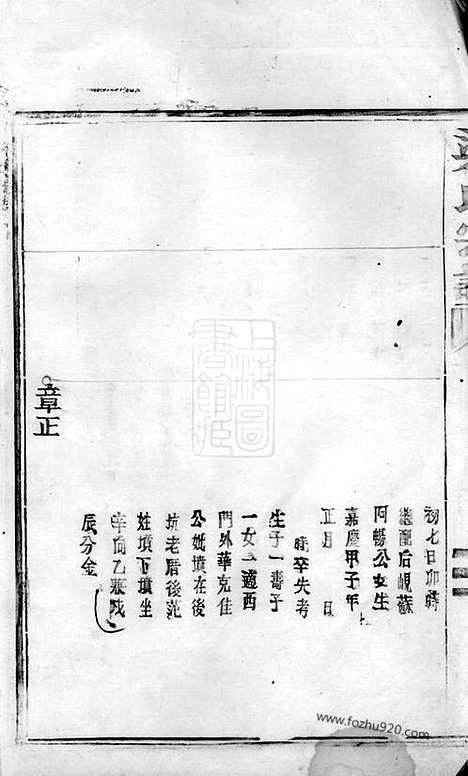 初七日卯時
繼配后峴蘇
阿暢公女生
嘉慶甲子年
正月　日
時卒失考
生子一壽子
一女一適西
門外華克佳
公妣墳在後
坑老厝後范
姓墳下墳坐
辛向乙兼戌
辰分金
章正
上海圖書館藏
www.fozhu920.com